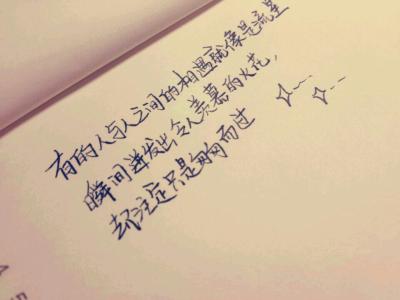 有的人与人之间的相遇就像是流星
瞬间迸发出令人羡慕的火花，
却注定只是匆匆而过